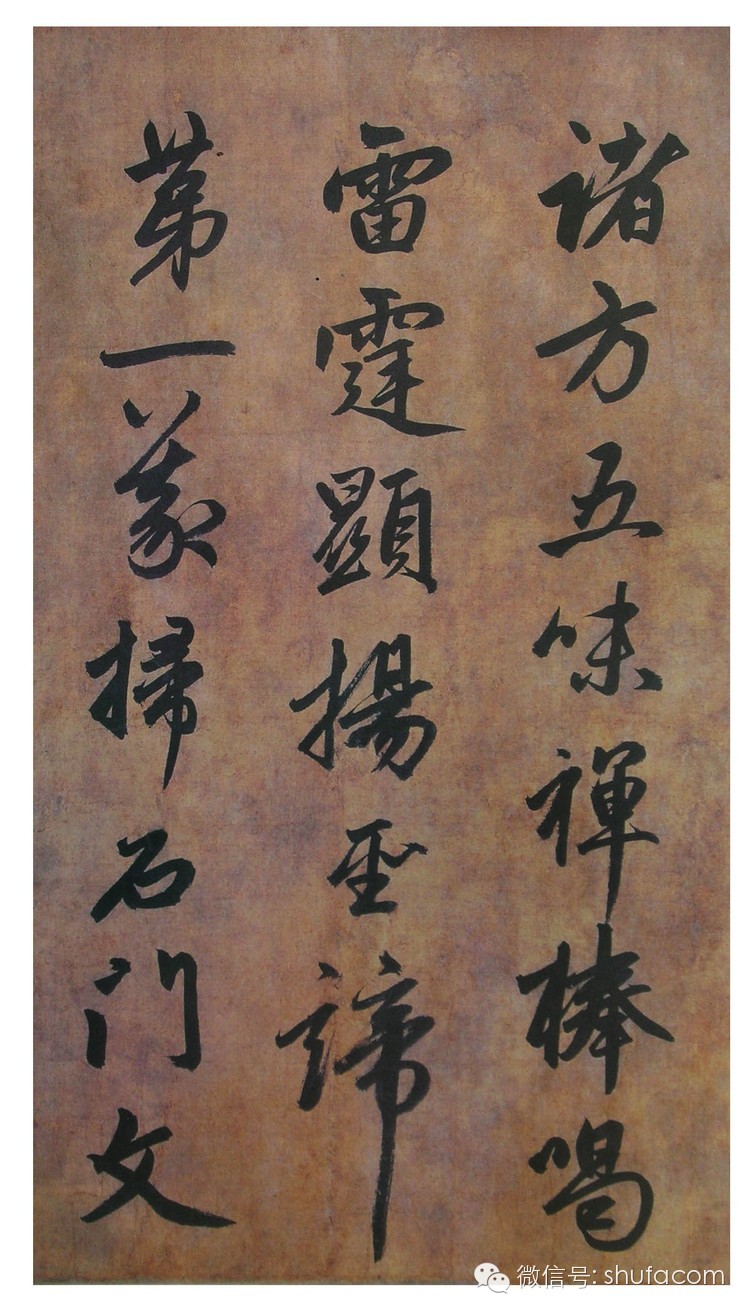 诸方五味禅棒喝
雷霆顯揚聖諦
第一義掃石門文
微信号: shufacom